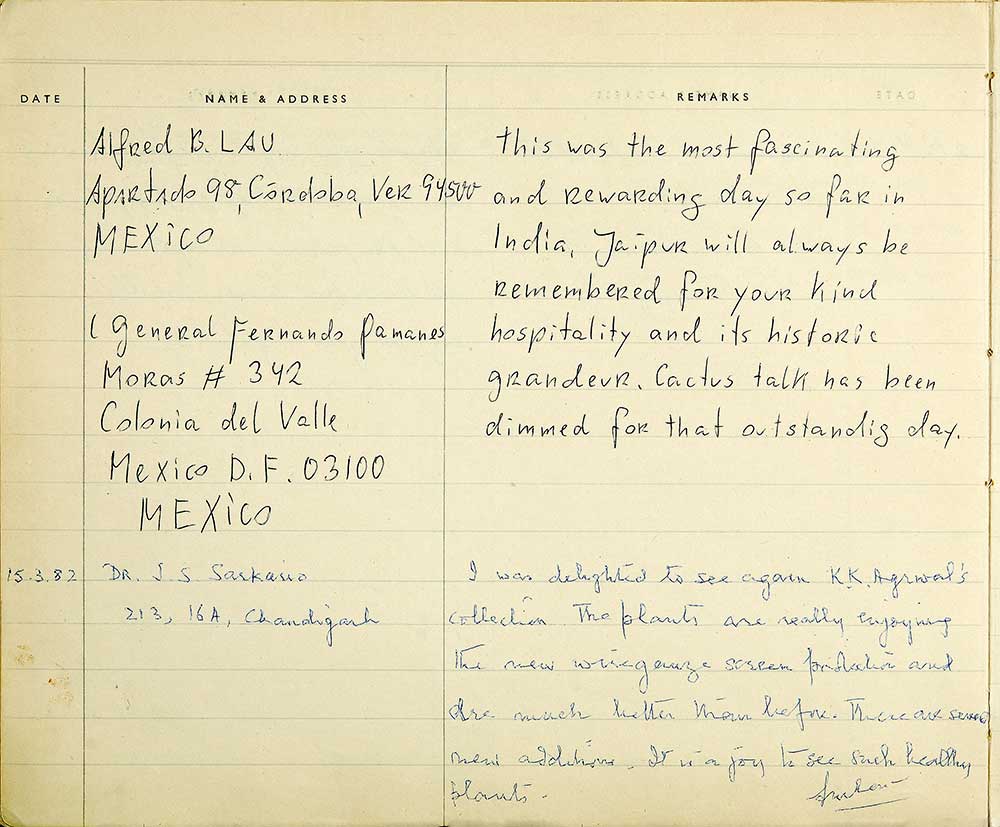 DATE
NAME & ADDRESS
REMARKS
Alfred B. LAU
Apartado 98, Córdoba, Ver 94500
MEXiCO
( General Fernando Pamanes
Moras # 342
Colonia del Valle
Mexico D.F. 03100
MEXiCO
This was the most fascinating
and rewarding day so far in
India, Jaipur will always be
remembered for your kind
hospitality and its historic
grandeur. Cactus talk has been
dimmed for that outstandig day.
15.3.82
DR. J S Sarkaria
213, 16A, Chandigarh
I was delighted to see again K.K. Agrwal's
collection. The plants are really enjoying
the new wiregauze screen protection and
are much better than before. There are several
new additions. It is a joy to see such healthy
plants.